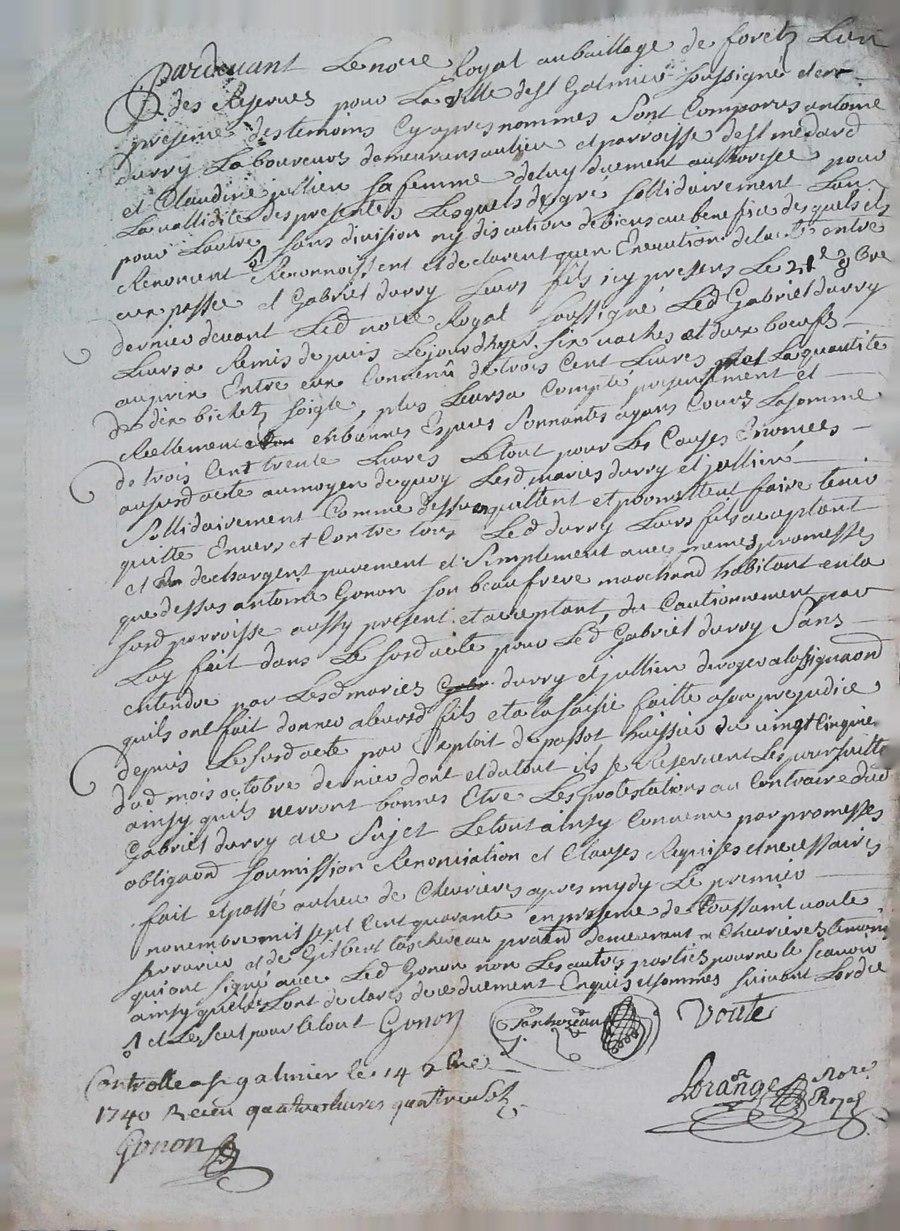 Pardevant Le nore Royal au bailliage de foretz Lun
des Reservés pour La ville de st Galmier soussigné et en
presence des temoins Cy apres nommes Sont Comparus antoine
durry Laboureur demeurans au lieu et parroisse de st medard
et Claudine jullien sa femme deluy duement authorisée pour
La vallidite des presentes Lesquels de gre sollidairement Lun
pour Lautre sans division ny discution de biens au benefice desquels ils
Renoncent Reconnoissent et declarent quen Execution de lacte entre
eux passée et Gabriel durry Leurs fils icy present Le 21e 8bre
dernier devant Led nore Royal soussigné, Led Gabriel durry
Leurs a Remis depuis Lejourdhyer six vaches et deux boeufs
au prix Entre eux Convenu de trois Cent Livres La quantite
de dix bichets soigle, plus Leurs a Compté presentement et
Reellement en bonnes Espeses Sonnantes ayans Cours La somme
de trois Cent trente Livres Letout pour Les Causes Enoncees
au susd acte au moyen dequoy Lesd maries durry et jullien
Sollidairement Comme dessus quittent et promettent faire tenir
quitte Envers et Contre tous Led durry Leurs fils aceptant
et dechargent purement et Simplement avec memes promesses
que dessus antoine Gonon son beaufrere marchand habitant en la
susd parroisse aussy present et aceptant, du Cautionnement par
Luy fait dans Le susd acte pour Led Gabriel durry Sans
entendre par Lesd maries durry et jullien deroger a lassignaon
quils ont fait donner aleursd fils et a la saisie faitte a son prejudice
depuis Le susd acte par Exploit de passot huissier du vingt cinquie
dud mois octobre dernier dont et dutout ils se Reservent Les poursuitte
ainsy quils verront bonnes Etre Les protestations au Contraire dud
Gabriel durry a ce Sujet Letout ainsy Convenu par promesses
obligaon soumission Renonciation et Clauses Requises et necessaires
fait et passé au lieu de Chevrieres apres mydy Le premier
novembre mil sept Cent quarante en presence de toussaint voute
serrurier et de Gilbert praen demeurant a Chevrieres temoins
qui ont signé avec Led Gonon non Les autres parties pour ne le scavoir
ainsy quelles Lont declaré de ce duement Enquis et sommes suivant Lordce
et Le seul pour le tout Gonon
Voute
Lorange nore Royal
Controllé a st galmier le 14 9bre
1740 Recu quatre livres quatre sols
Gonon